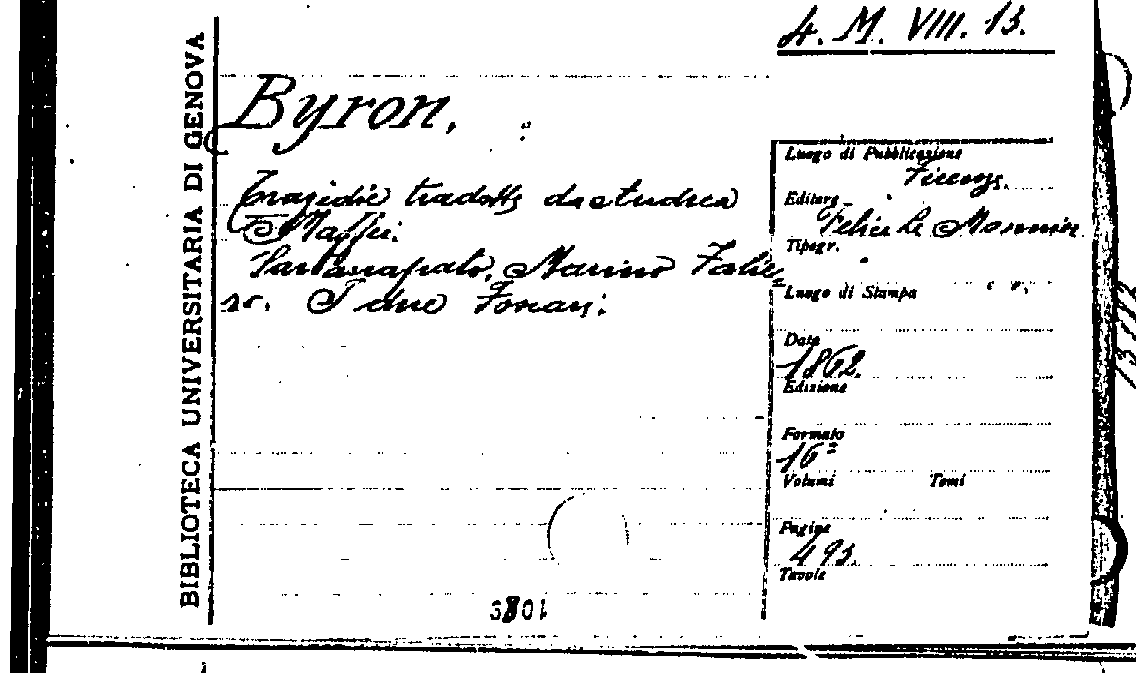 4. M. VIII. 13.
BIBLIOTECA UNIVERSITARIA DI GENOVA
Byron,
Tragidie tradotte da Andrea
Maffei.
Sardanapalo, Marino Falie-
ro. I due Foscari.
Luogo di Pubblicazione
Firenze.
Editore
Felice Le Monnier
Tipogr.
Luogo di Stampa
Data
1862.
Edizione
Formato
16º
Volumi Tomi
Pagine
493.
Tavole